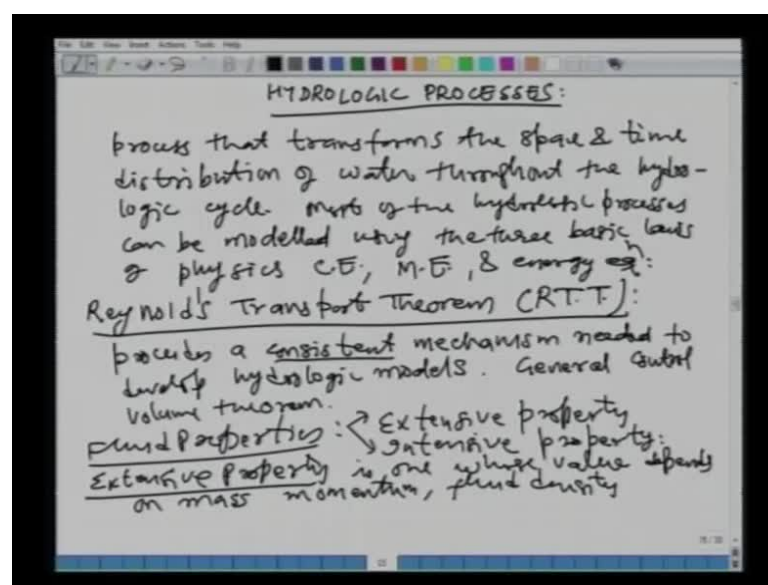 File Edit View Insert Actions Tools Help
HYDROLOGIC PROCESSES:
process that transforms the space & time
distribution of water throughout the hydro-
logic cycle. Most of the hydrologic processes
can be modelled using the three basic laws
of physics C.E., M.E., & energy eqn:
Reynold's Transport Theorem (R.T.T.):
provides a consistent mechanism needed to
develop hydrologic models. General control
volume theorem.
Fluid Properties: Extensive property
Intensive property:
Extensive Property is one whose value depends
on mass momentum, fluid density